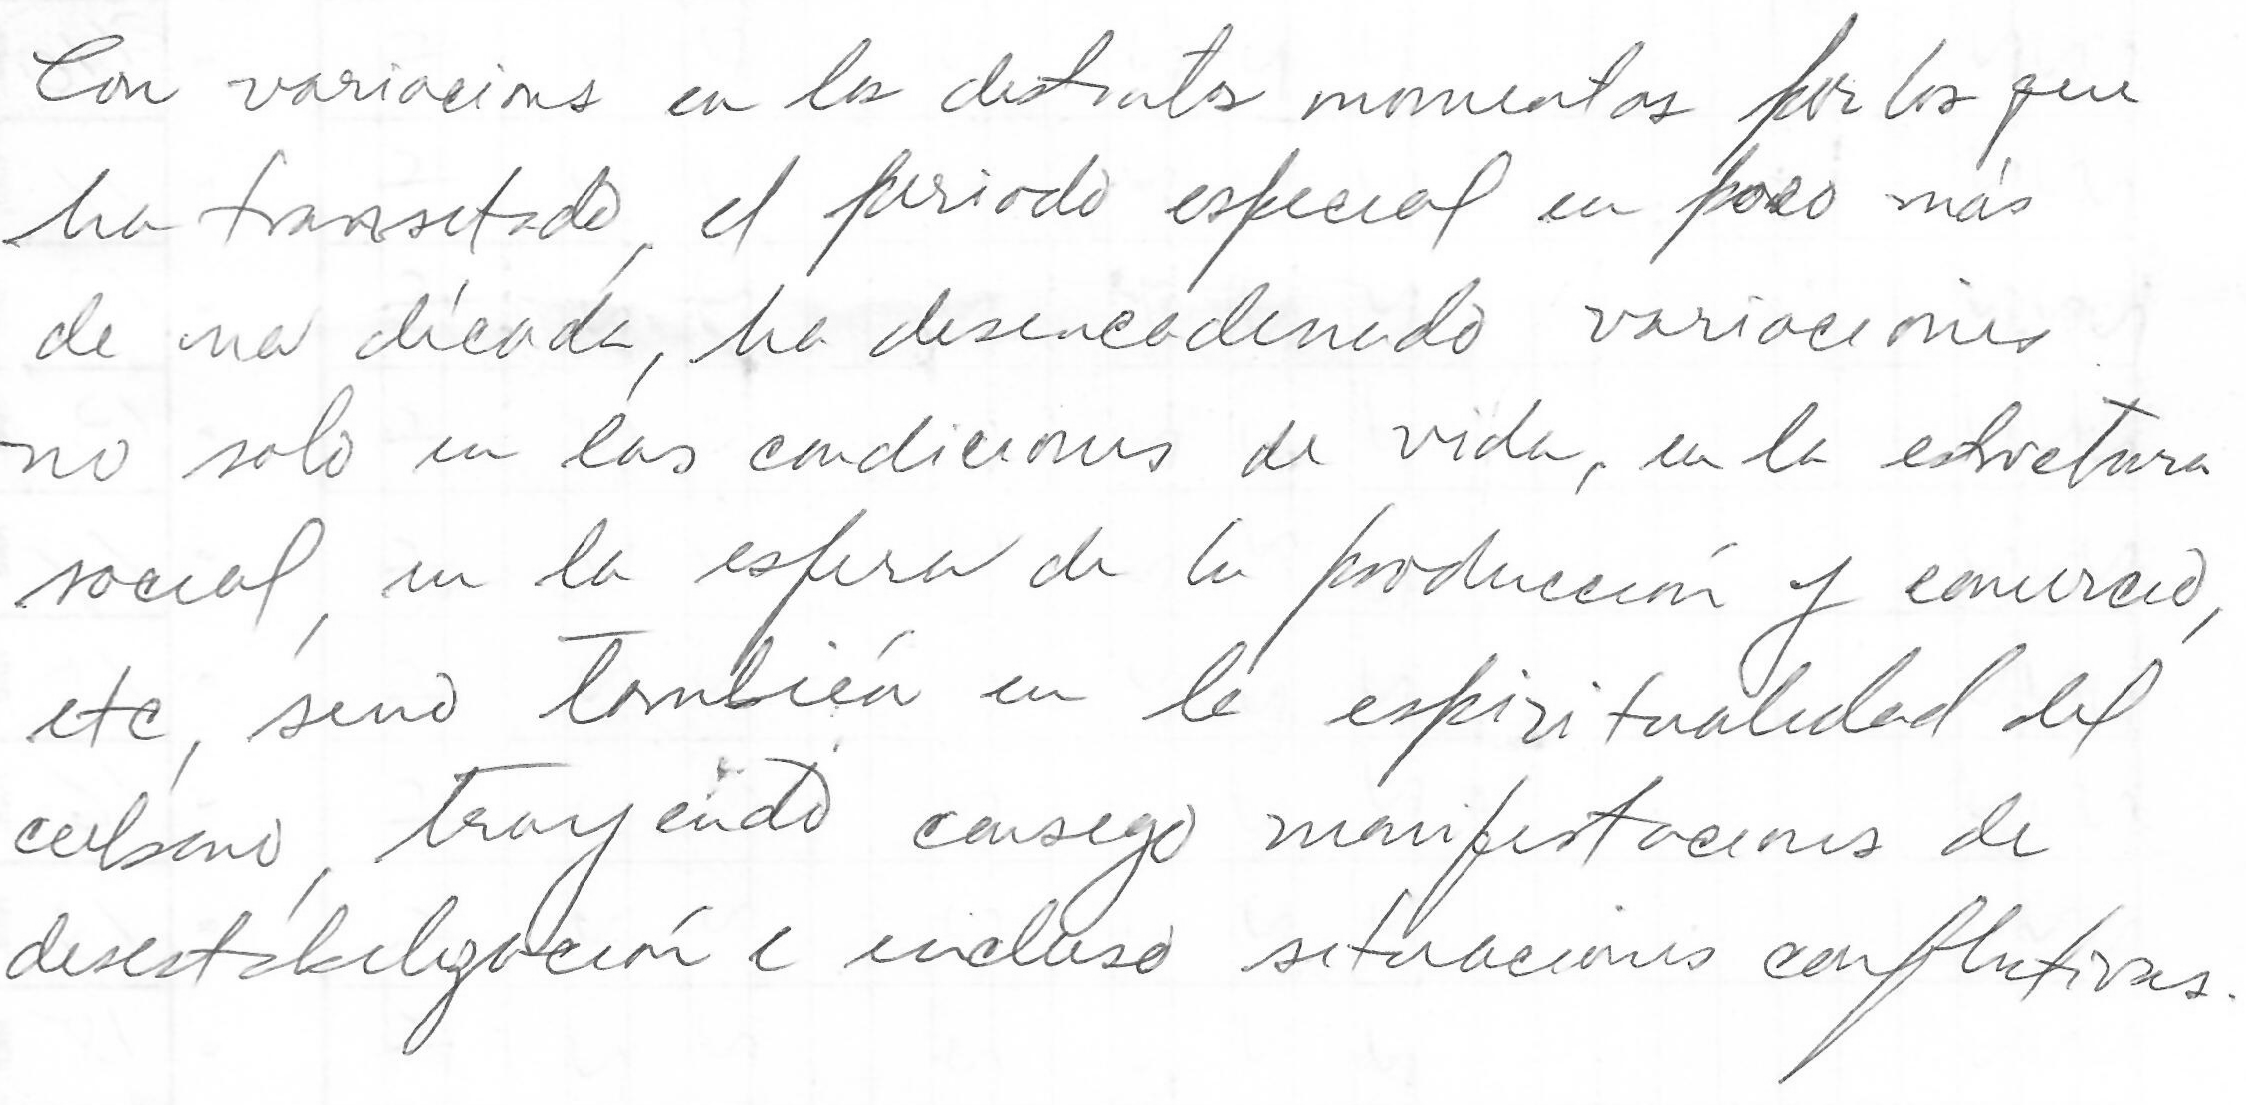 Con variaciones en los distintos momentos por los que
ha transitado, el periodo especial en poco más
de una década, ha desencadenado variaciones
no solo en las condiciones de vida, en la estructura
social, en la esfera de la producción y comercio,
etc, sino también en la espiritualidad del
cubano, trayendo consigo manifestaciones de
desestabilización e incluso situaciones conflictivas.